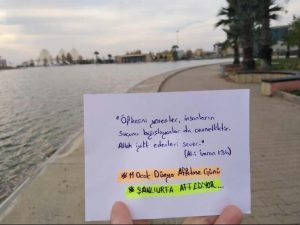 "Öfkesini yenenler, insanların
suçunu bağışlayanlar da cennetliktir.
Allah iyilik edenleri sever."
(Âl-i İmran 134)
#11 Ocak Dünya Affetme Günü
#ŞANLIURFA AFFEDİYOR...